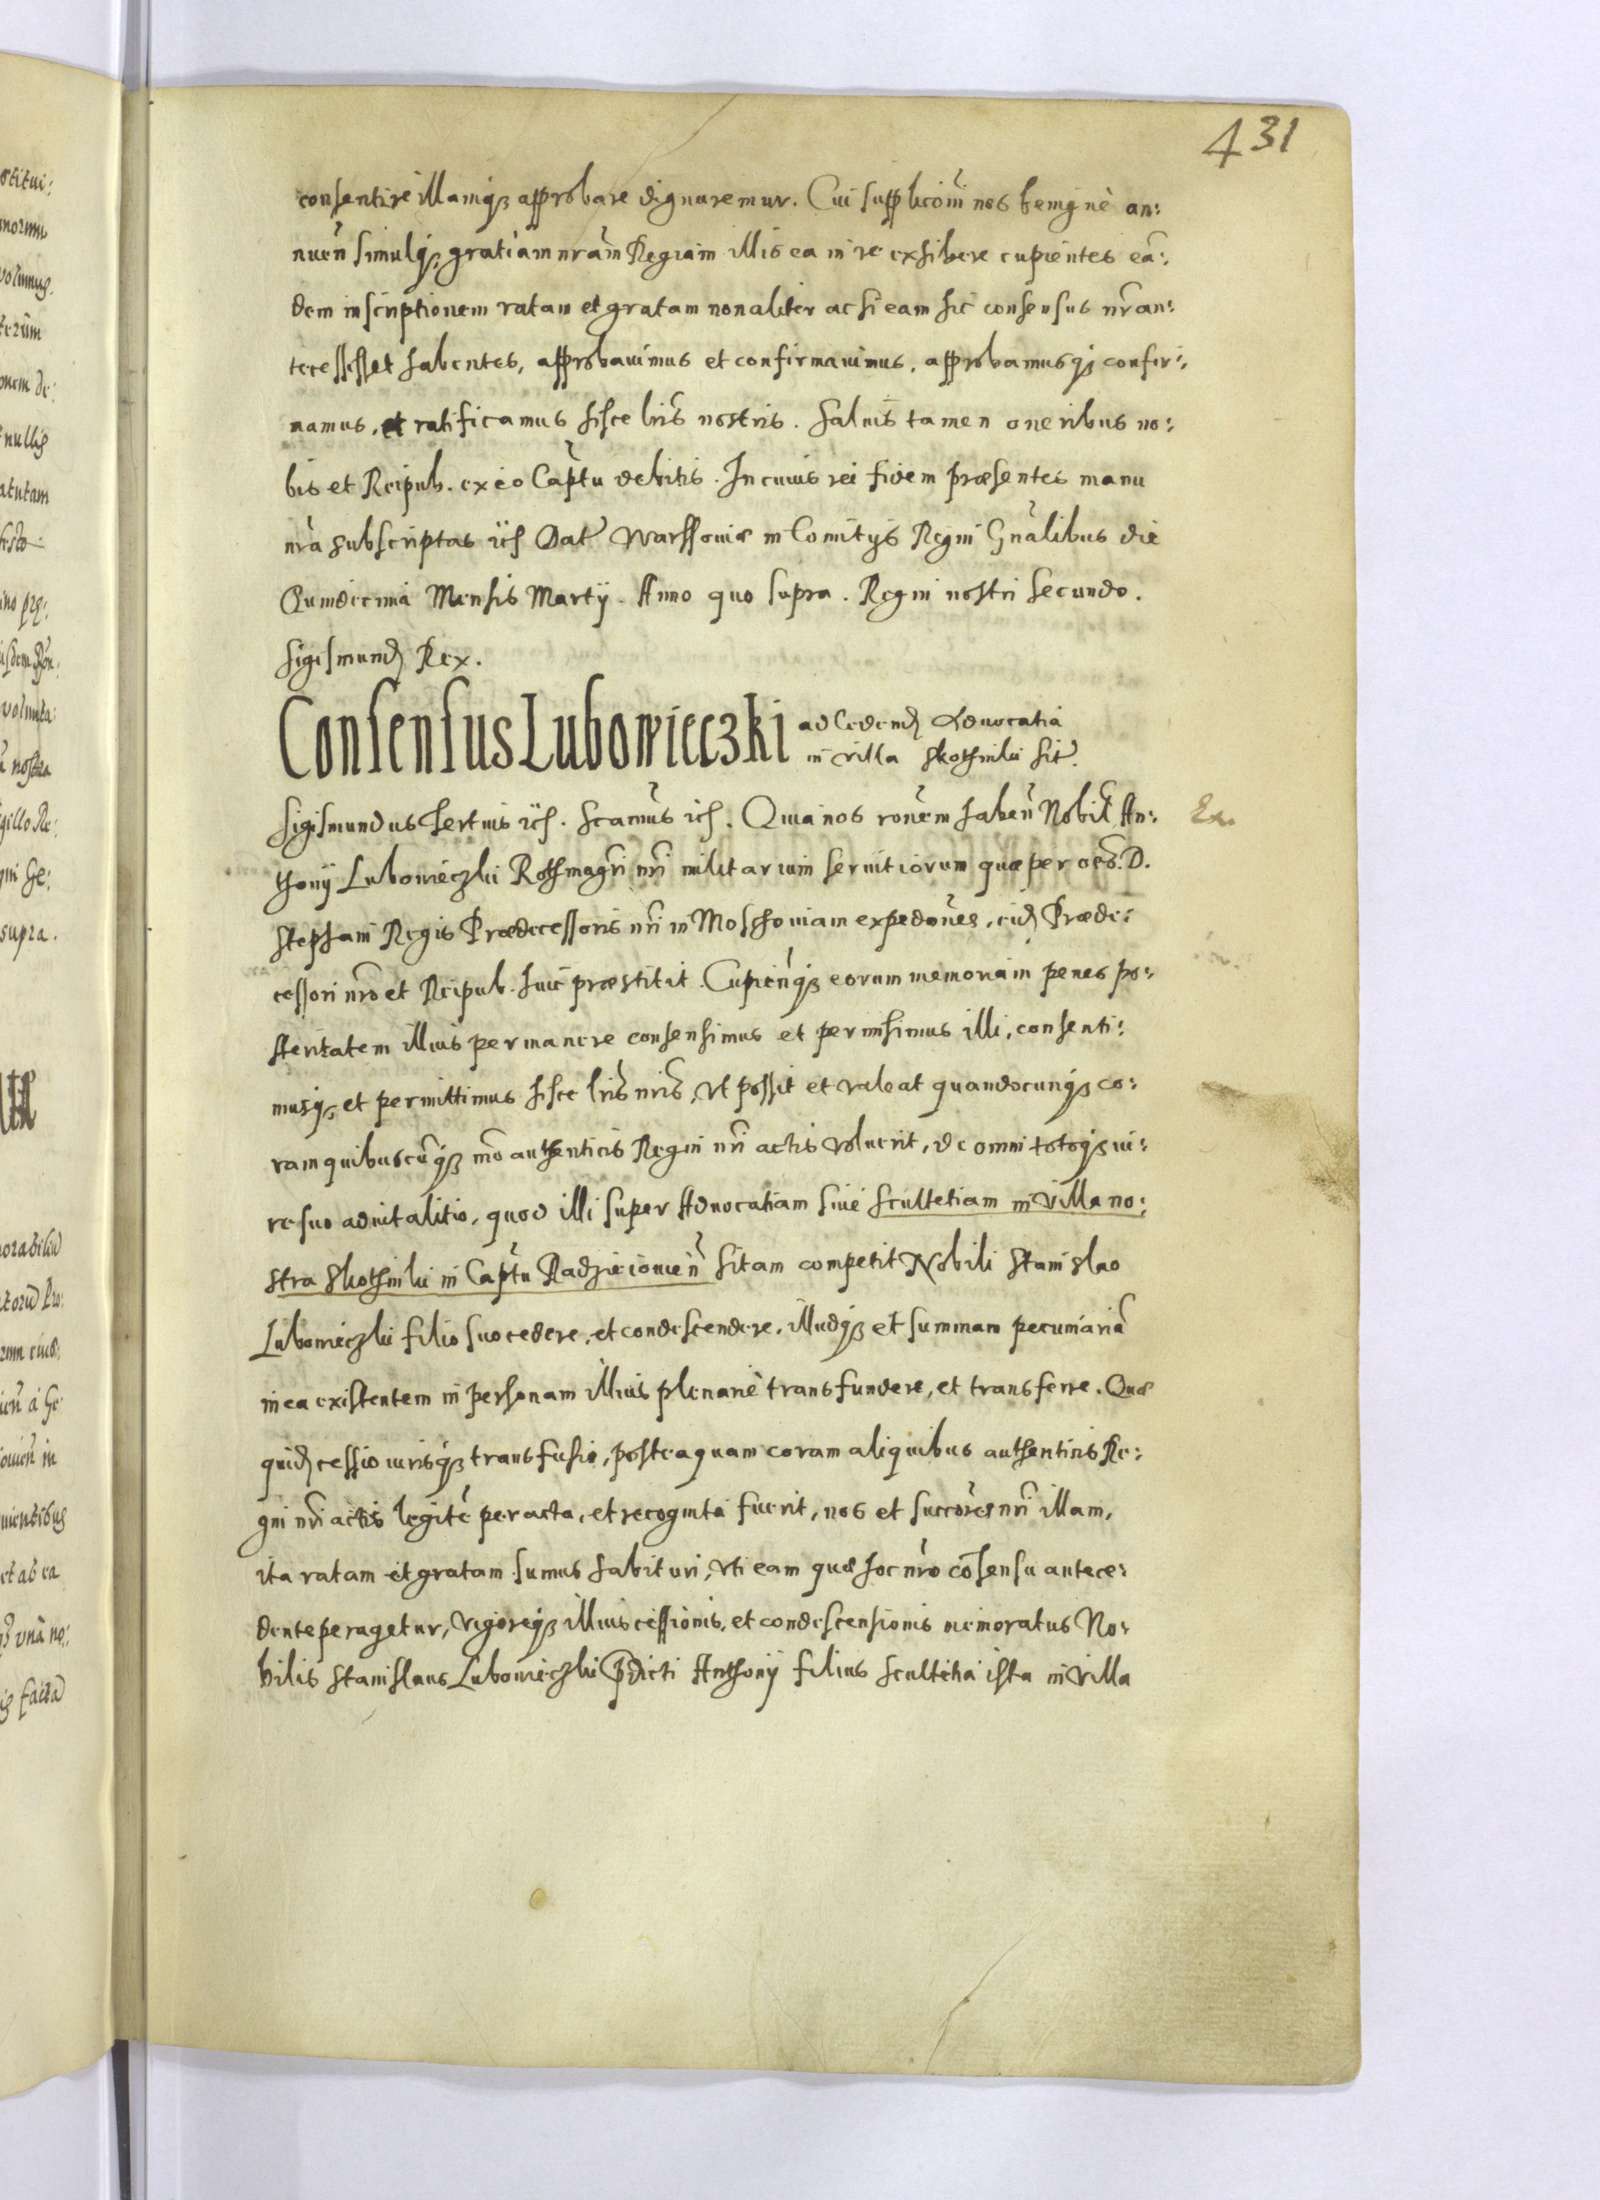 431
consentire illamq3 approbare dignaremur. Cui supplicõni nos benignè an:
nuen̄ simulq3 gratiam nrãm Regiam illis ea in re exhibere cupientes eã:
dem inscriptionem ratam et gratam non aliter ac si eam hic consensus nr̄ an:
tecessisset habentes, approbauimus et confirmauimus, approbamusq3 confir:
mamus, et ratificamus hisce lris̃ nostris. Saluis tamen oneribus no:
bis et Reipub. ex eo Captu debitis. In cuius rei fidem præsentes manu
nrã subscriptas ич Dat̃ Warssouiæ in Comitijs Regni Gnãlibus die
Quindecima Mensis Martij. Anno quo supra. Regni nostri secundo.
Sigismund9 Rex.
Consensus Lubowieczki ad Cedend9 Aduocatia
in villa Skothniki sit̃.
Sigismundus Tertius ič. Scãmus ič. Quia nos rõnem haben̄ Nobil̃ An: Ex.
thonij Lubowieczki Rothmagrĩ nrĩ militarium seruitiorum quæ per oẽs D.
Stephani Regis Prædecessoris nrĩ in Moschouiam expedõnes, eid9 Præde:
cessori nrõ et Reipub. huic præstitit. Cupien̄q3 eorum memoriam penes po:
steritatem illius permanere consensimus et permisimus illi, consenti:
musq3 et permittimus hisce lris̃ nris̃, Vt possit et valeat quandocunq3 co:
ram quibuscũq3 mõ authenticis Regni nrĩ actis voluerit, de omni totoq3 iu:
re suo aduitalitio, quod illi super Aduocatiam siue Scultetiam in Villa no:
stra Skothniki in Captu Radzieiouien̄ sitam competit Nobili Stanislao
Lubowieczki filio suo cedere, et condescendere, illudq3 et summam pecuniariã
in ea existentem in personam illius plenariè transfundere, et transferre. Quæ
quid9 cessio iurisq3 transfusio, posteaquam coram aliquibus authenticis Re:
gni nrĩ actis legitè peracta, et recognita fuerit, nos et succõres nrĩ illam,
ita ratam et gratam sumus habituri, vti eam quæ hoc nrõ cõsensu antece:
dente peragetur, Vigoreq3 illius cessionis, et condescensionis memoratus No:
bilis Stanislaus Lubowieczki p̃dicti Anthonij filius Scultetia ista in Villa